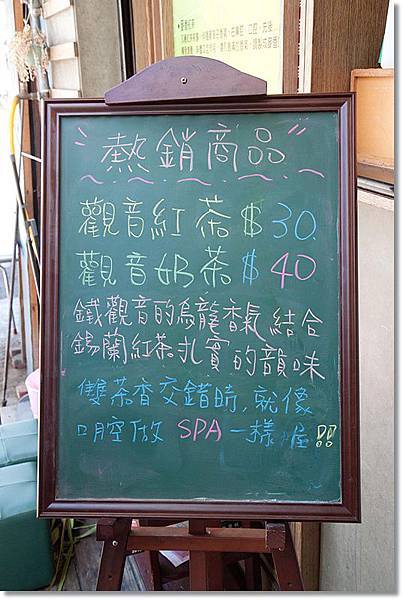 "熱銷商品"
觀音紅茶 $30.
觀音奶茶 $40
鐵觀音的烏龍香氣結合
錫蘭紅茶扎實的韻味
雙茶香交錯時,就像
口腔做 SPA 一樣喔!!